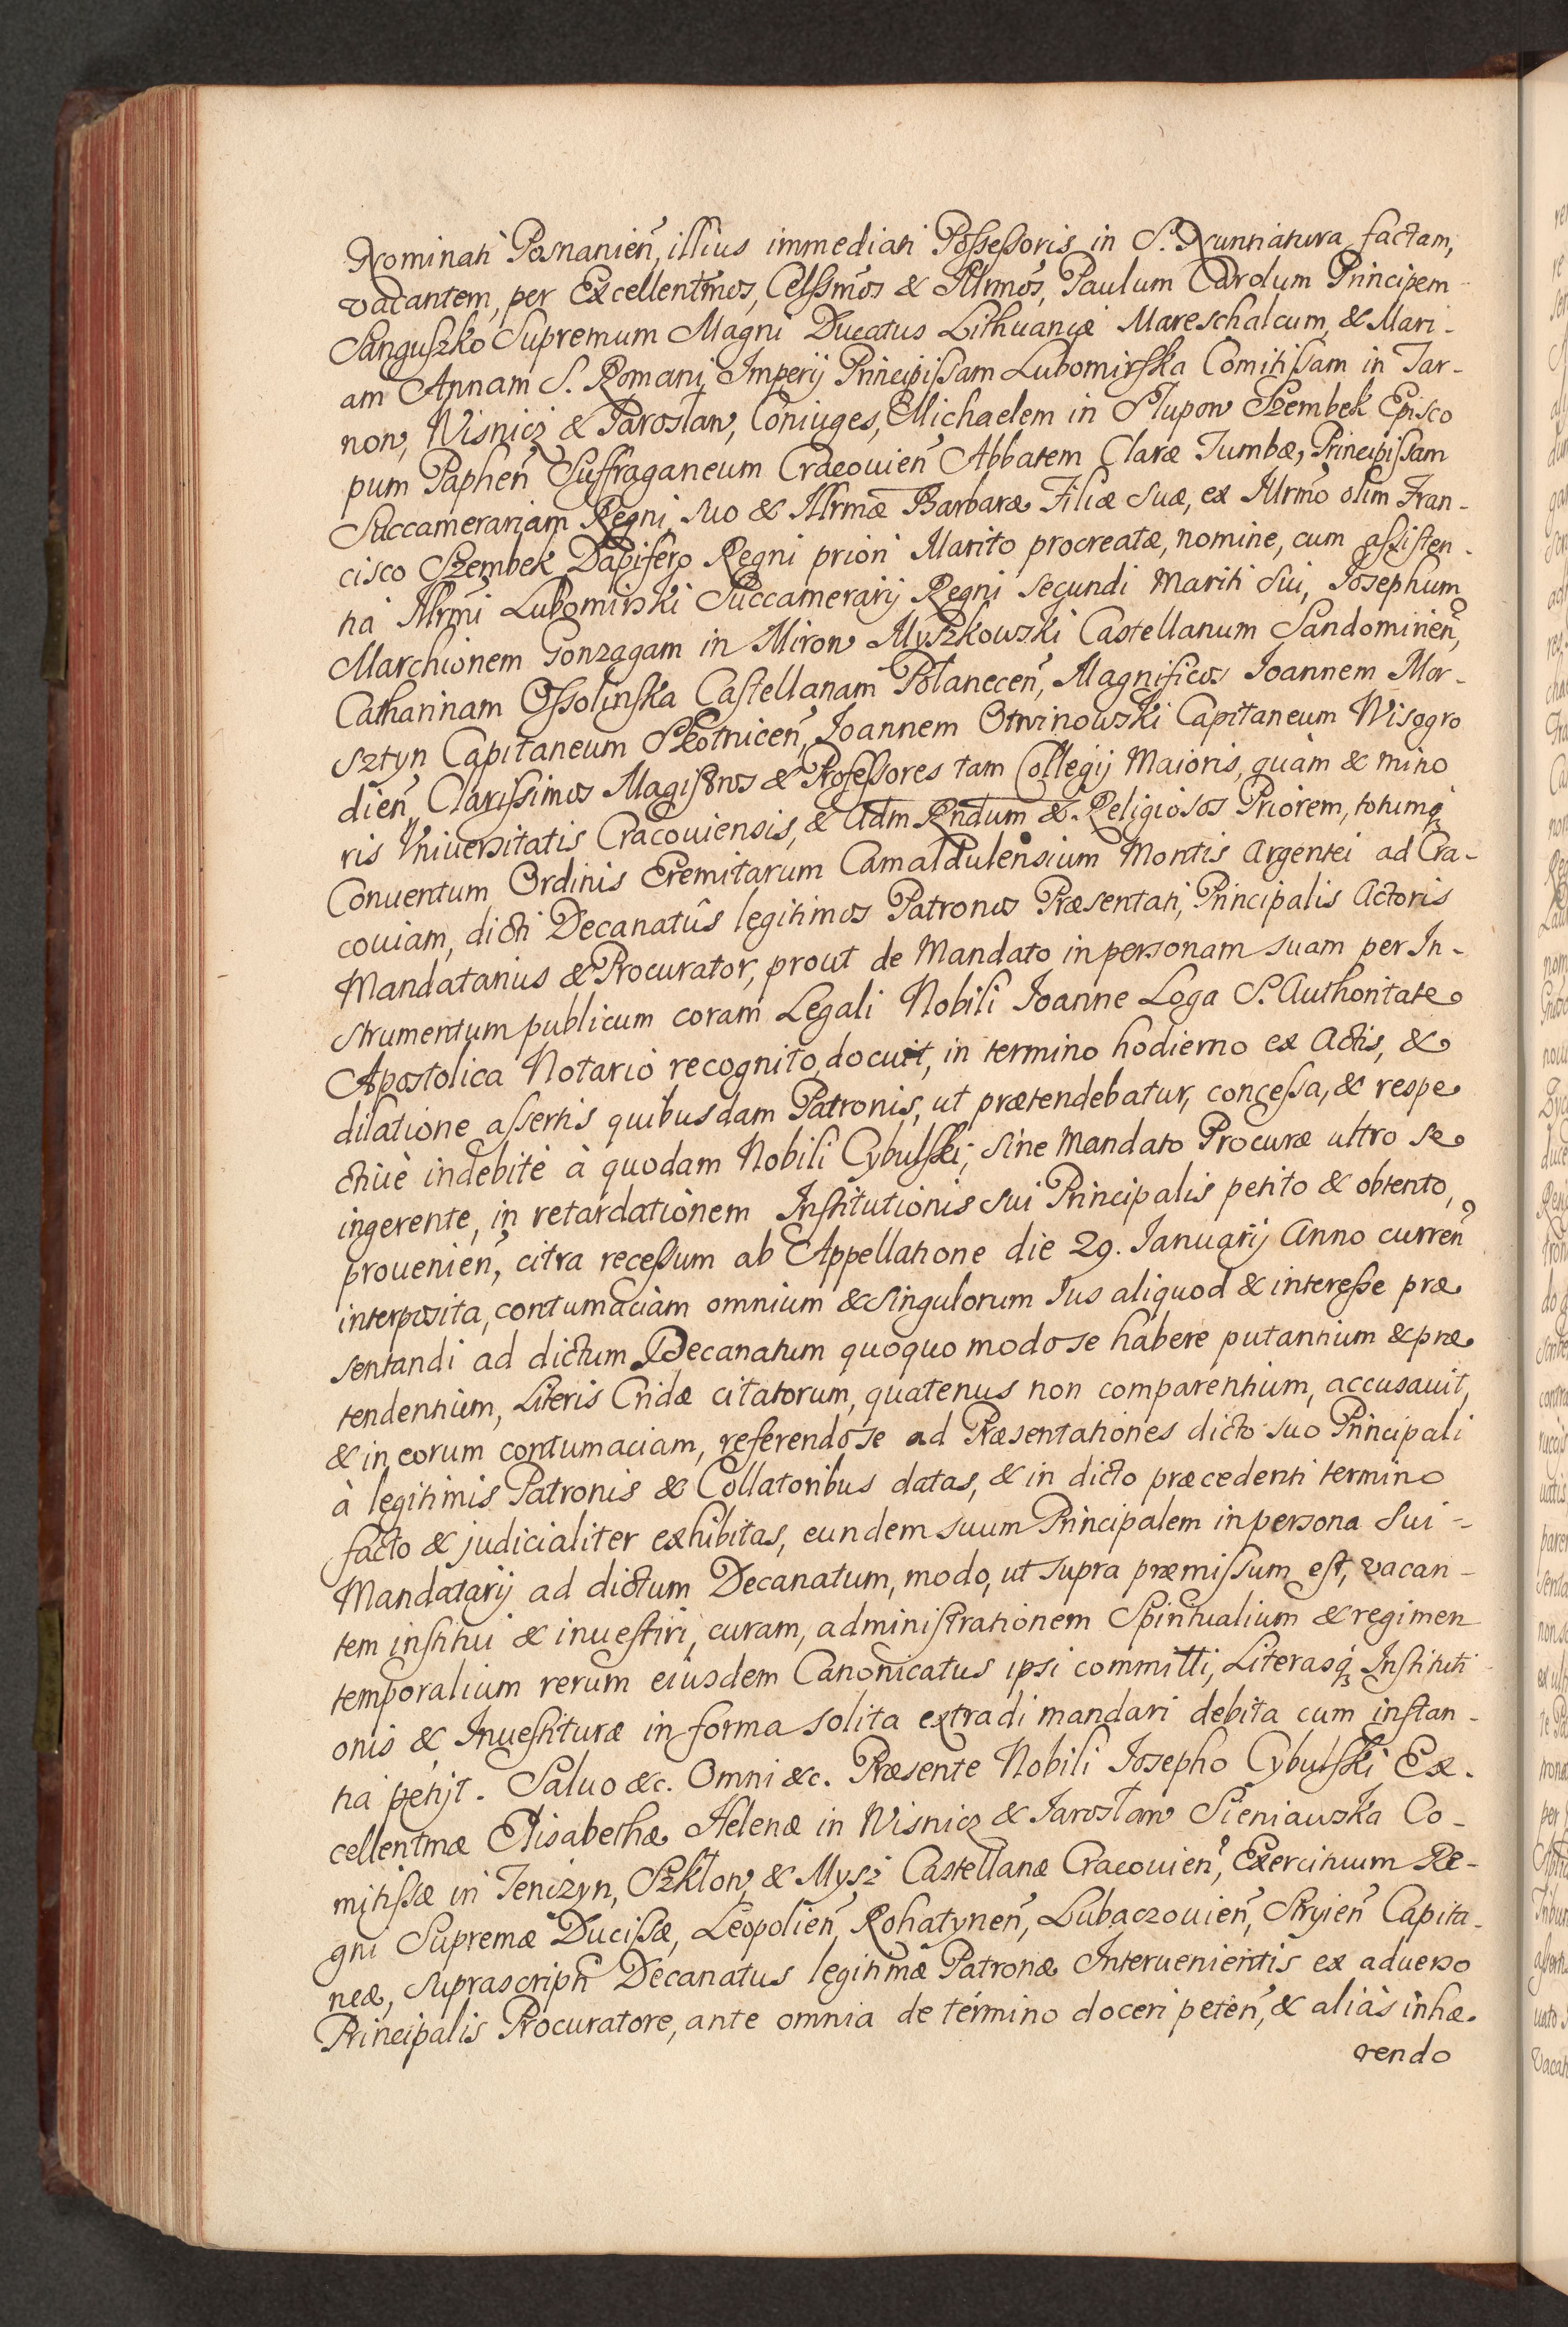 Nominati Posnanien̄, illius immediati Possessoris in S. Nuntiatura factam,
vacantem, per Excellentm̄os, Celssm̄os & Illrm̄os, Paulum Carolum Principem
Sanguszko Supremum Magni Ducatus Lithuaniæ Mareschalcum, & Mari-
am Annam S. Romani Imperij Principissam Lubomirska Comitissam in Tar-
now, Wisnicz & Jarosław, Coniuges, Michaelem in Słupow Szembek Episco
pum Paphen̄ Suffraganeum Cracouien̄ Abbatem Claræ Tumbæ, Principissam
Succamerariam Regni, suo & Illrmæ Barbaræ Filiæ suæ, ex Illrm̄o olim Fran-
cisco Szembek Dapifero Regni priori Marito procreatæ, nomine, cum assisten-
tia Illrm̄i Lubomirski Succamerarij Regni secundi Mariti sui, Josephum
Marchionem Gonzagam in Mirow Myszkowski Castellanum Sandomirien̄,
Catharinam Ossolinska Castellanam Połanecen̄, Magnificos Joannem Mor-
sztyn Capitaneum Skotnicen̄, Joannem Otwinowski Capitaneum Wisogro
dien̄, Clarissimos Magistros & Professores tam Collegij Maioris, quàm & mino
ris Vniuersitatis Cracouiensis, & Adm Rndum & Religiosos Priorem, totumq
Conuentum Ordinis Eremitarum Camaldulensium Montis Argentei ad Cra-
couiam, dicti Decanatûs legitimos Patronos Præsentati, Principalis Actoris
Mandatarius & Procurator, prout de Mandato in personam suam per In-
strumentum publicum coram Legali Nobili Joanne Loga S. Authoritate
Apostolica Notario recognito, docuit, in termino hodierno ex Actis, &
dilatione assertis quibusdam Patronis, ut prætendebatur, concessa, & respe
ctiuè indebitè à quodam Nobili Cybulski, sine Mandato Procuræ ultro se
ingerente, in retardationem Institutionis sui Principalis petito & obtento,
prouenien̄, citra recessum ab Appellatione die 29. Januarij Anno curren̄
interposita, contumaciam omnium & singulorum Jus aliquod & interesse præ
sentandi ad dictum Decanatum quoquo modo se habere putantium & præ
tendentium, Literis Cridæ citatorum, quatenus non comparentium, accusauit,
& in eorum contumaciam, referendo se ad Præsentationes dicto suo Principali
à legitimis Patronis & Collatoribus datas, & in dicto præcedenti termino
facto & judicialiter exhibitas, eundem suum Principalem in persona sui =
Mandatarij ad dictum Decanatum, modo, ut supra præmissum est, vacan-
tem institui & inuestiri, curam, administrationem Spiritualium & regimen
temporalium rerum eiusdem Canonicatus ipsi committi, Literasq Instituti-
onis & Inuestituræ in forma solita extradi mandari debita cum instan-
tia petijt. Saluo &c. Omni &c. Præsente Nobili Josepho Cybulski Ex-
cellentmæ Elisabethæ Helenæ in Wisnicz & Jarosław Sieniawska Co-
mitissæ in Tenczyn, Szkłow, & Mysz Castellanæ Cracouien̄, Exercituum Re-
gni Supremæ Ducissæ, Leopolien̄, Rohatynen̄, Lubaczouien̄, Stryien̄ Capita-
neæ, suprascripti Decanatus legitimæ Patronæ Interuenientis ex aduerso
Principalis Procuratore, ante omnia de término doceri peten̄, & aliàs inhæ-
rendo